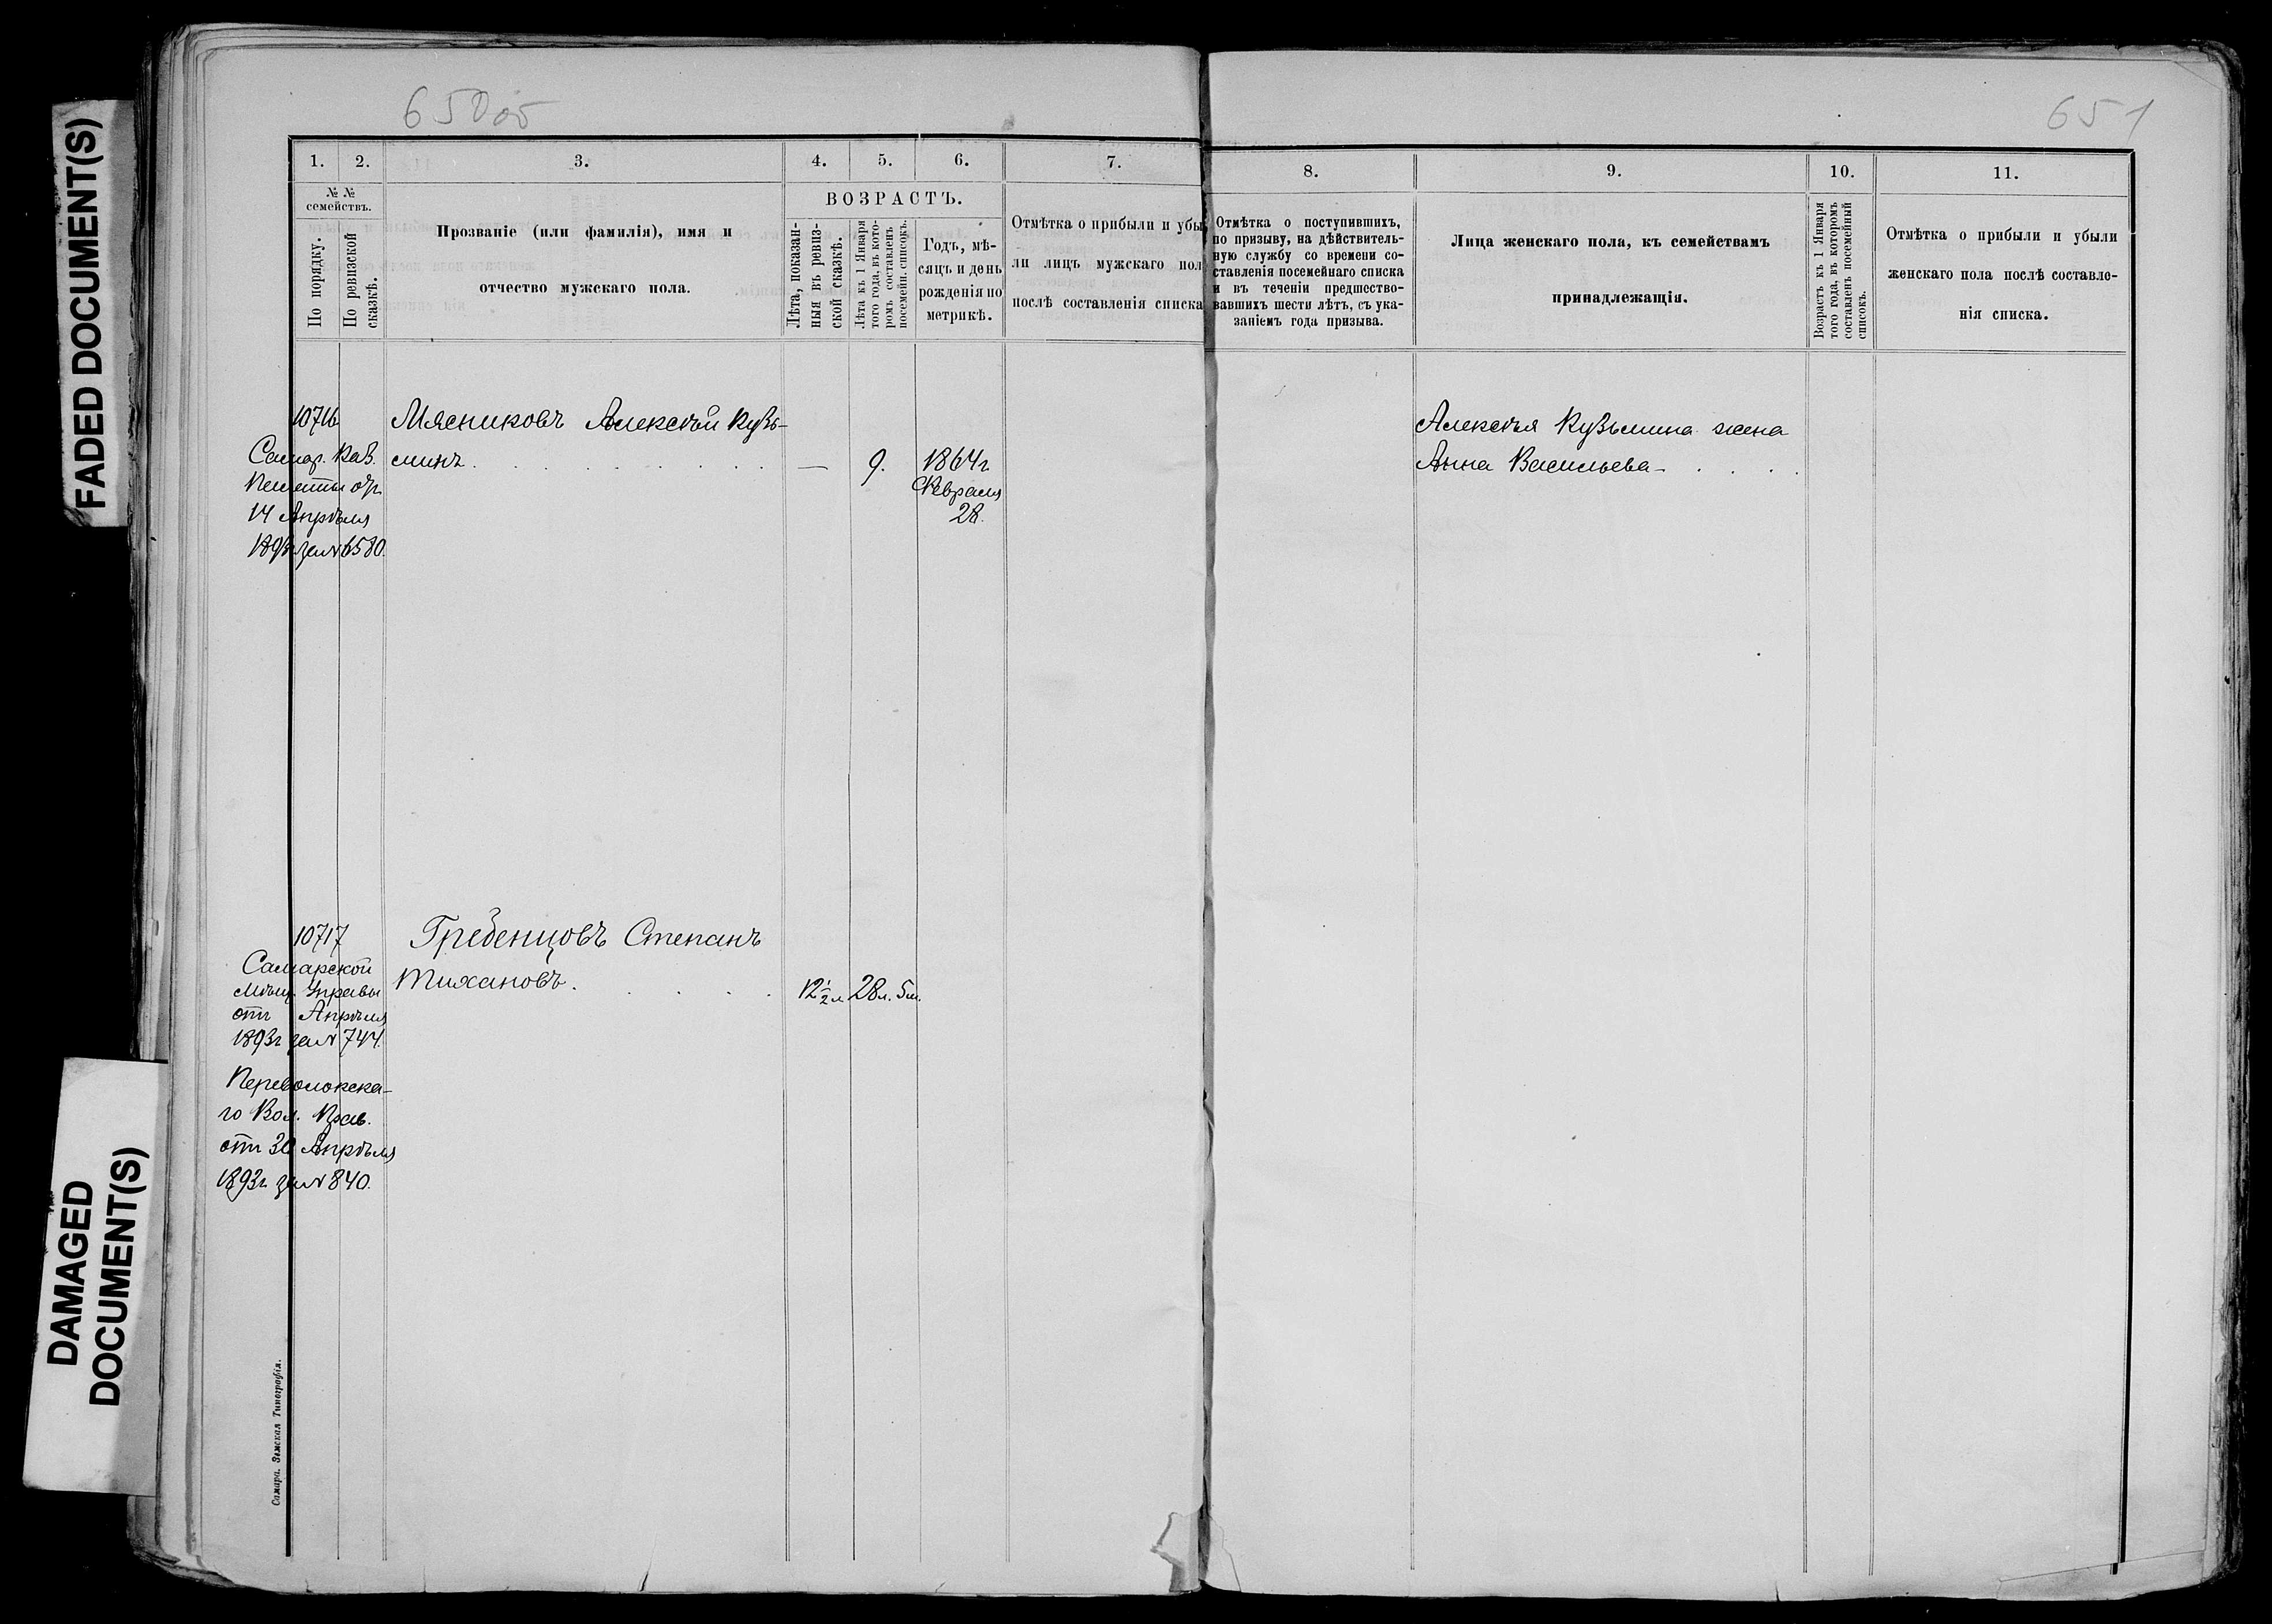 FADED DOCUMENT(S)
DAMAGED
DOCUMENT(S)
650об
651
1.
2.
3.
4.
5.
6.
7.
8.
9.
10.
11.
№ №
семействъ.
По порядку.
По ревизской
сказкѣ.
Прозваніе (или фамилія), имя и
отчество мужскаго пола.
ВОЗРАСТЪ.
Лѣта, показан-
ныя въ ревиз-
ской сказкѣ.
Лѣта къ 1 Января
того года, въ кото-
ромъ составленъ
посемейн. списокъ.
Годъ, мѣ-
сяцъ и день
рожденія по
метрикѣ.
Отмѣтка о прибыли и убы
ли лицъ мужскаго пол
послѣ составленія списка
Отмѣтка о поступившихъ,
по призыву, на дѣйствитель-
ную службу со времени со-
ставленія посемейнаго списка
и въ теченіи предшество-
вавшихъ шести лѣтъ, съ ука-
заніемъ года призыва.
Лица женскаго пола, къ семействамъ
принадлежащія.
Возрастъ къ 1 Января
того года, въ которомъ
составленъ посемейный
списокъ.
Отмѣтка о прибыли и убыли
женскаго пола послѣ составле-
нія списка.
10716
Мясниковъ Алексѣй Кузь-
минъ. — 9. 1864г
Февраля
28.
Самар. Каз.
Палаты отъ
14 Апрѣля
1893г за № 6580.
Алексѣя Кузьмина жена
Анна Васильева
10717
Гребенцовъ Степанъ
Тихановъ. 12 1/2 л 28 л. 5 м.
Самарской
Мѣщ. Управы
отъ Апрѣля
1893г за № 744.
Переволокска-
го Вол. Прав.
отъ 30 Апрѣля
1893г за № 840.
Самара. Земская Типографія.